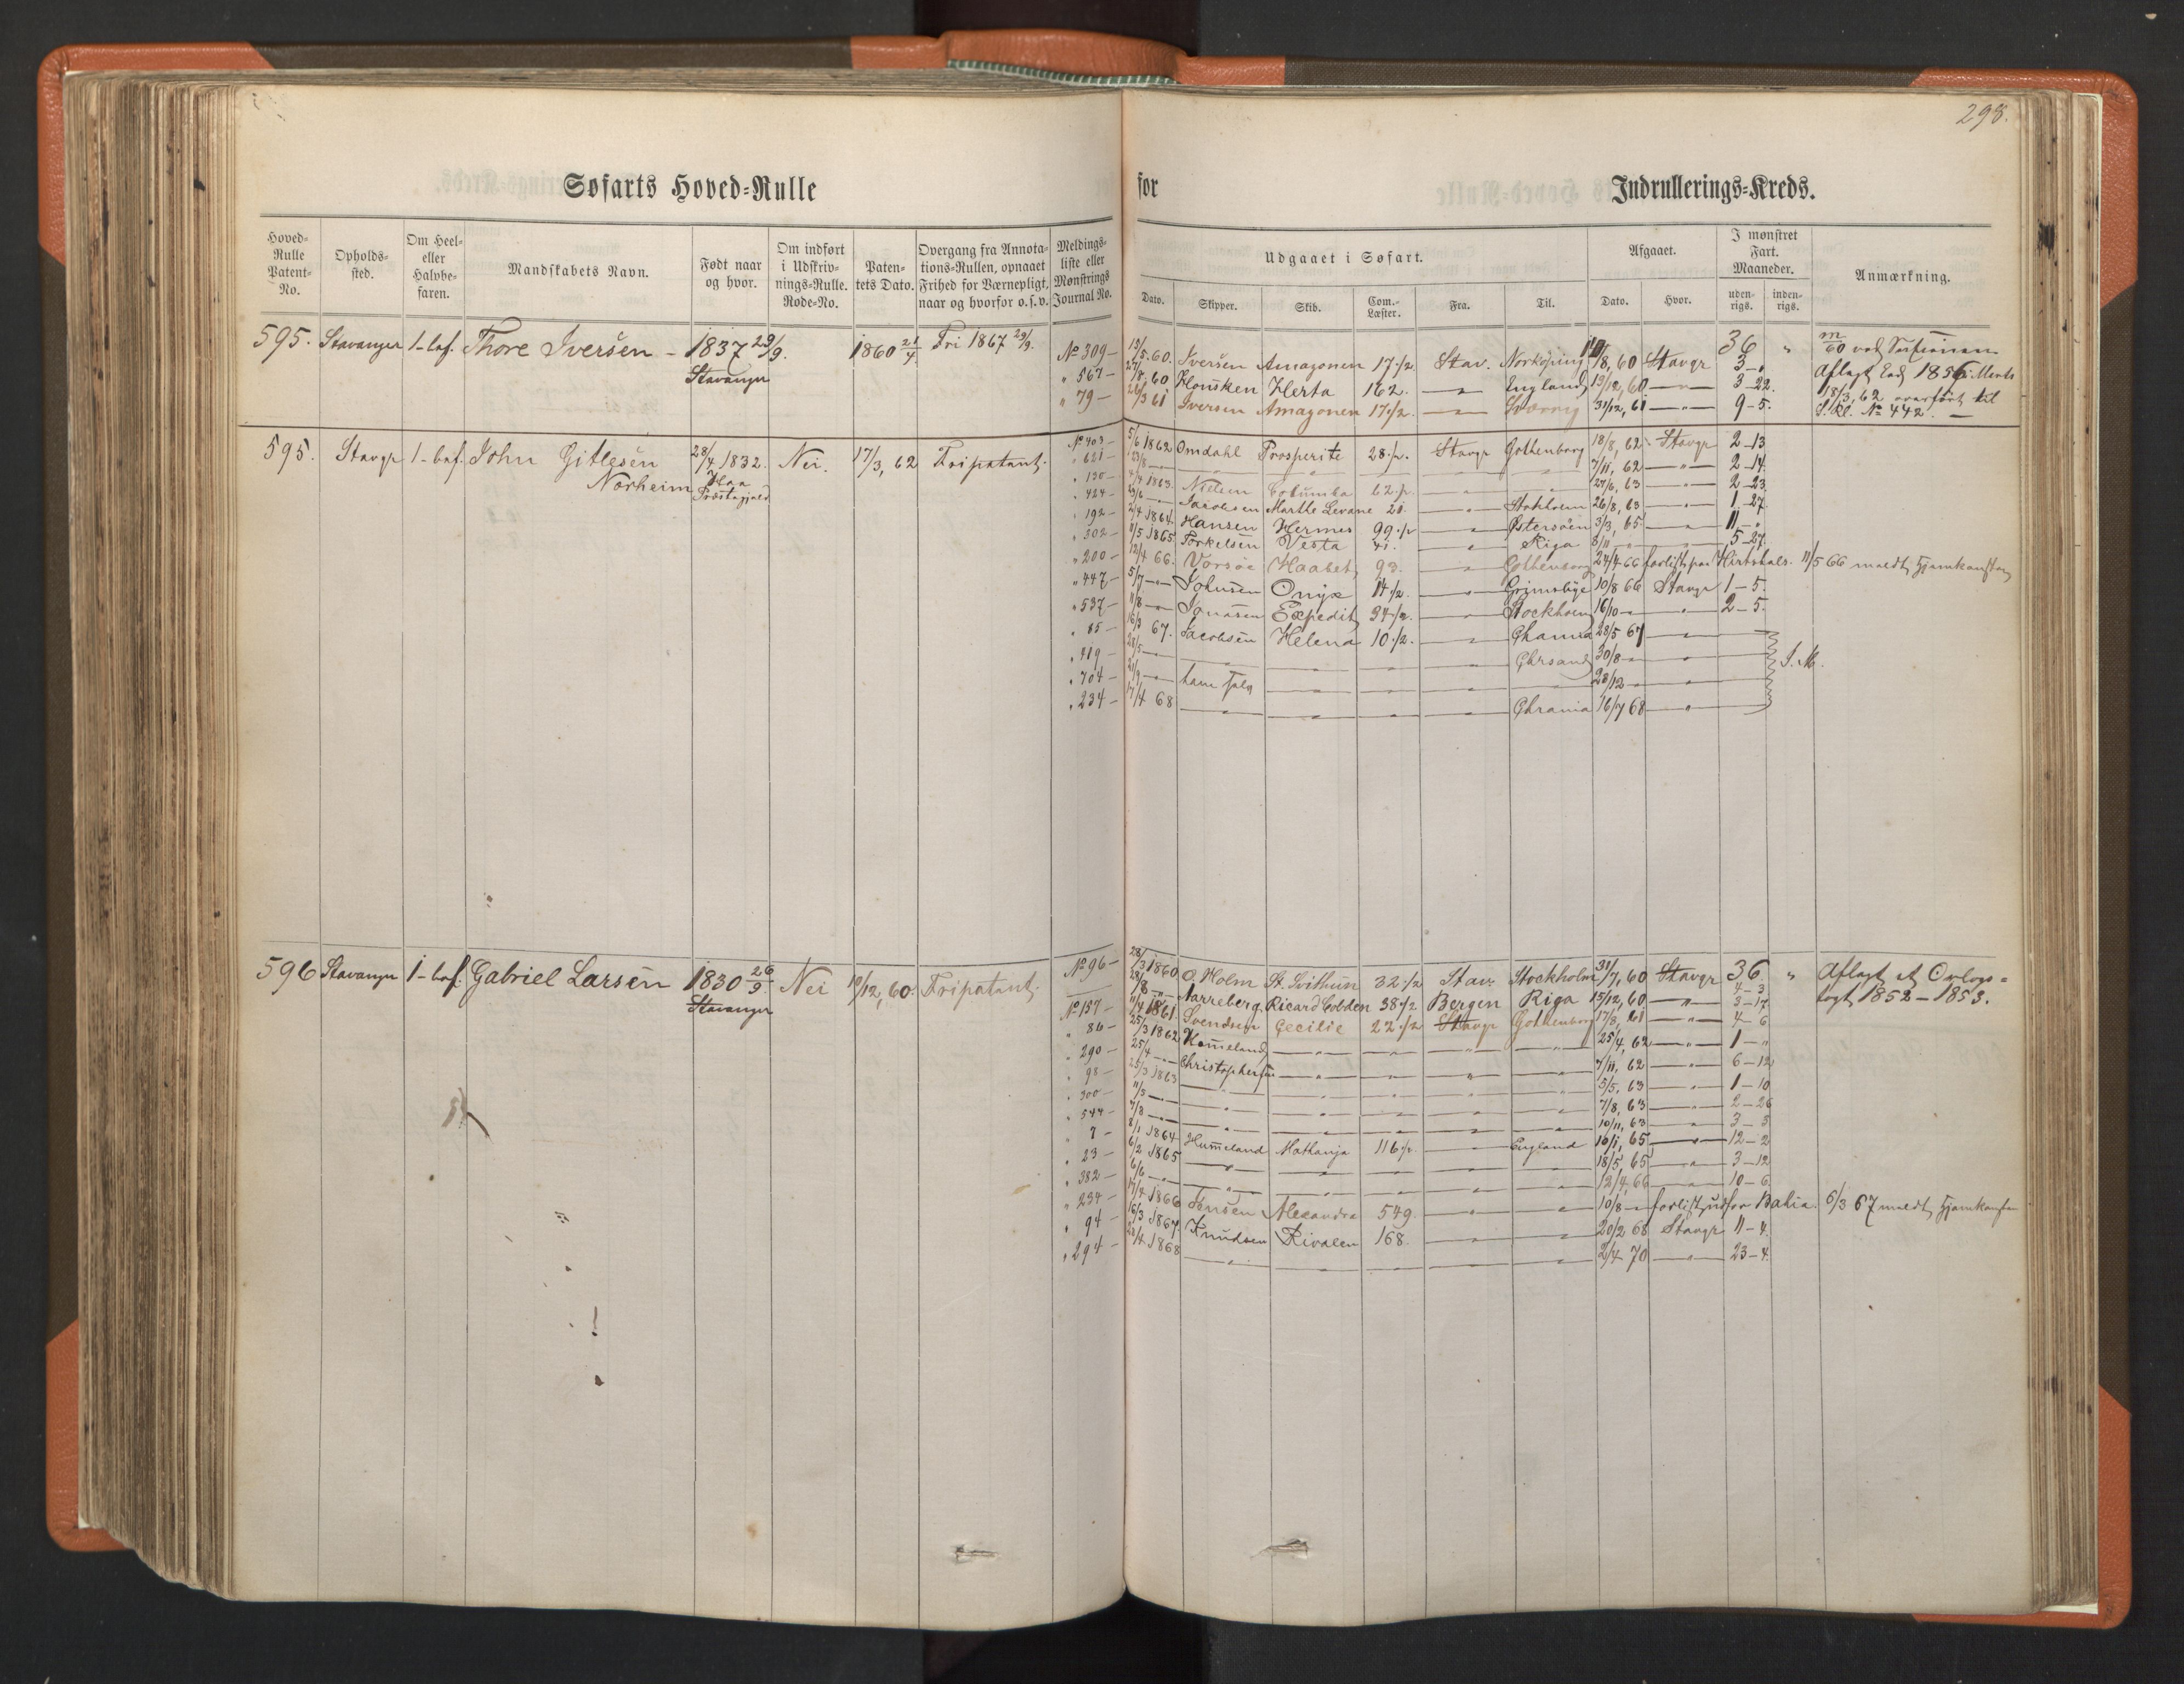 298.
Søfarts Hoved-Rulle for Indrullerings-Kreds.
Hoved-Rulle Patent-No. Opholds-sted. Om Heel- eller Halvbe-faren. Mandskabets Navn. Født naar og hvor. Om indført i Udskriv-nings-Rulle. Rode-No. Paten-tets Dato. Overgang fra Annota-tions-Rullen, opnaaet Frihed for Værnepligt, naar og hvorfor o. s. v. Meldings-liste eller Mønstrings Journal No.
Udgaaet i Søfart. Afgaaet. I mønstret Fart. Maaneder. Anmærkning.
Dato. Skipper. Skib. Com.-Læster. Fra. Til. Dato. Hvor. uden-rigs. inden-rigs.
595. Stavanger 1-bef. Thore Iversen - 1837 29/9. Stavanger 1860 21/4. Fri 1867 29/9.
36 "
No 309 - 5.60. Iversen Amagonen 17 1/2 Stav. Norköping /8, 60 Stavgr 3 - "
" 567 - 60. Homsken Herta 162. — " — England 13/12, 60 — " — 3-22.
" 79 - 26/3 61 Iversen Amagonen 17 1/2. — " — Sverrig 31/12, 61 — " — 9-5.
Aflagt Ed 1856.
18/3, 62 overført til
No 442. —
595. Stavgr 1-bef. John Gitlesen Norheim 28/4 1832. Haa Præstegjæld Nei. 17/3, 62 Fripatent.
No 403 - 5/6 1862 Omdahl Prosperite 28 1/2. Stavgr Gothenborg 18/8, 62 Stavgr 2-13
" 621 - 23/8 — " — 7/11, 62 — " — 2-14.
" 130 - 4/4 1863. Nielsen Columba 62 1/2 — " — 27/6, 63 — " — 2-23
" 424 - 29/6 — " — Jacobsen Marthe Levane 20. — " — Stokholm 26/8, 63 — " — 1-27.
" 192 - 2/4 1864. Hansen Hermes 99 1/2 — " — Østersøen 3/3, 65 — " — 11 - "
" 302 - 11/5 1865 Torkelsen Vesta — " — Riga 8/11 — " — 5-27.
" 200 - 12/4 66. Vorsøe Haabet 93. — " — Gothenborg 24/4 66 forlist paa Hirtshals. 11/5 66 meldt Hjemkomsten
" 447 - 5/7 — " — Johnsen Onyx 14 1/2. — " — Grimsbye 10/8 66 Stavgr 1-5.
" 537 - 11/8 — " — Jonasen Expedit 34 1/2. — " — Stockholm 16/10 — " — 2-5.
" 85 - 16/3 67. Jacobsen Helena 10 1/2. — " — Chania 28/5 67 — " —
" 419 - 28/5 — " — Chrsand 30/8 — " — I. M.
" 704 - 21/9 — " — ham selv — " — 28/12 — " —
" 234 - 17/4 68 — " — Chrania 16/7 68 — " —
596 Stavanger 1-bef. Gabriel Larsen 1830 26/9. Stavanger Nei 10/12, 60. Fripatent.
No 96 - 28/3 1860 O Holm St. Svithun 32 1/2 Stav. Stockholm 31/7, 60 Stavgr 36 "
4-3
Aflagt et Orlogs =
togt 1852 - 1853.
28/8 — " — Narreberg Ricard Cobden 38 1/2 Bergen Riga 15/12, 60 — " — 3-17
No 157 - 11/4 1861 Svendsen Cecilie 22 1/2 Stavgr Gothenborg 17/8, 61 — " — 4-6
" 86 - 25/3 1862 Homeland — " — 25/4, 62 — " — 1 - "
" 290 - 25/4 — " — Christophersen — " — 7/11, 62 — " — 6-12
" 98 - 25/3 1863 — " — 5/5, 63 — " — 1-10
" 300 - 11/5 — " — 7/8, 63 — " — 2-26
" 544 - 7/8 — " — 10/11, 63 — " — 3-3
" 7 - 8/1 1864 Hummeland Mathanja 116 1/2. — " — England 10/1, 65 — " — 12-2
" 23 - 6/2 1865 — " — 18/5, 65 — " — 3-12
" 382 - 6/6 — " — 12/4, 66 — " — 10-6
" 254 - 17/4 1866 Jensen Alexandra 549. — " — 10/8 — forlist udfor Bahia. 6/3 67 meldt Hjemkomsten
" 94 - 16/3 1867. Knudsen Rivalen 168. — " — 20/2 68 Stavgr 11-4.
" 294 - 28/4 1868 — " — 2/4 70 — " — 23-4.